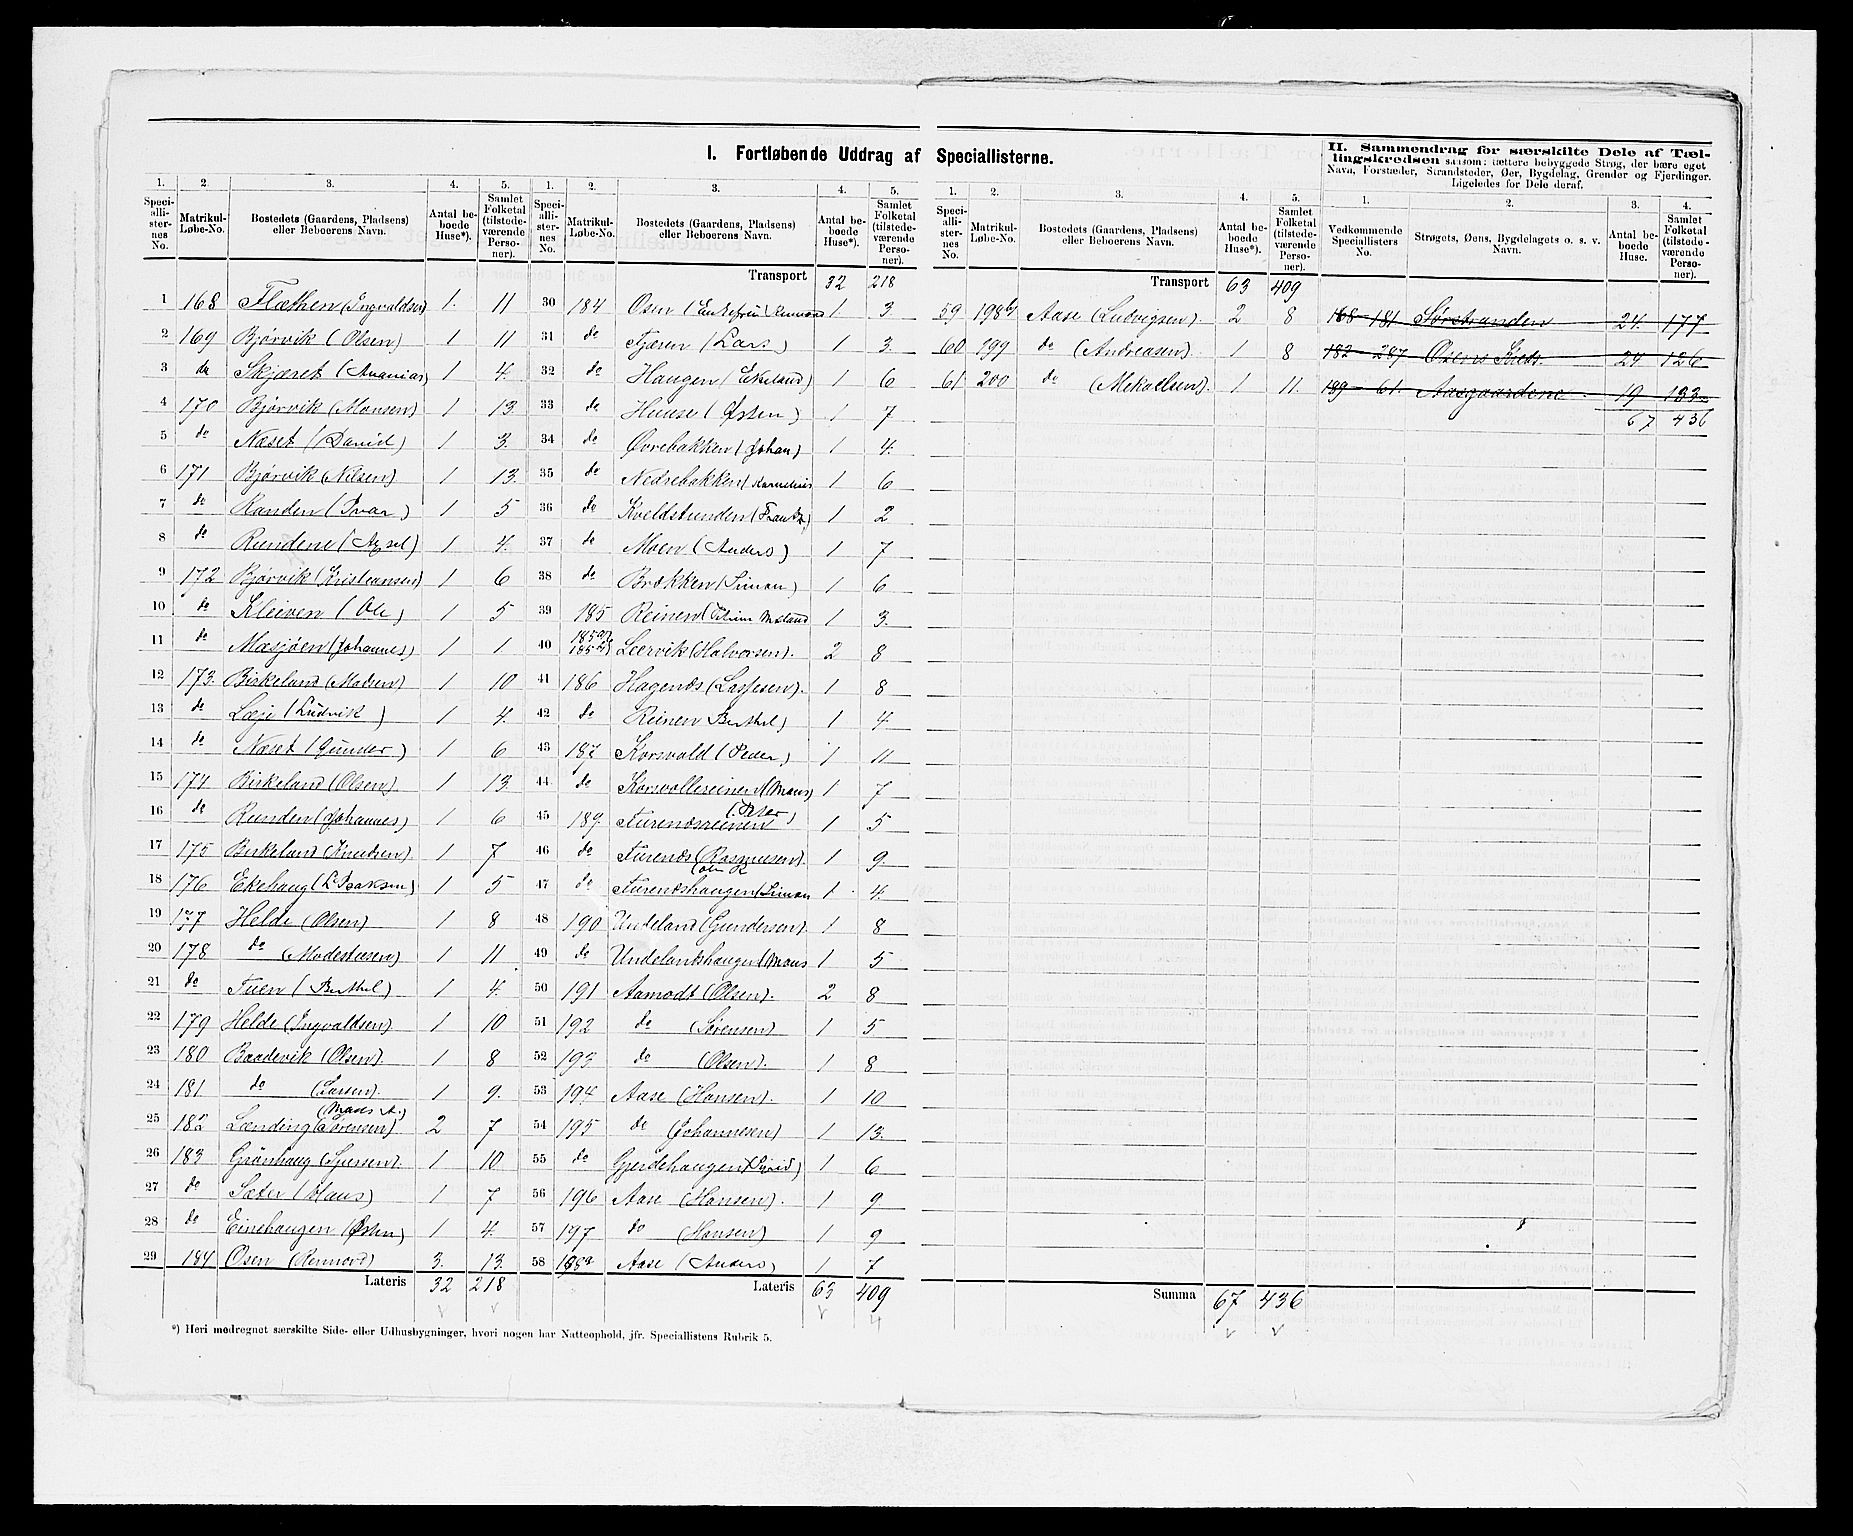 I. Fortløbende Uddrag af Speciallisterne.
II. Sammendrag for særskilte Dele af Tællingskredsen saasom: tættere bebyggede Strøg, der bære eget Navn, Forstæder, Strandsteder, Øer, Bygdelag, Grender og Fjerdinger. Ligeledes for Dele deraf.
1. 2. 3. 4. 5. 1. 2. 3. 4. 5. 1. 2. 3. 4. 5. 1. 2. 3. 4.
Speciallisternes No. Matrikul-Løbe-No. Bostedets (Gaardens, Pladsens) eller Beboerens Navn. Antal beboede Huse*). Samlet Folketal (tilstedeværende Personer).
Speciallisternes No. Matrikul-Løbe-No. Bostedets (Gaardens, Pladsens) eller Beboerens Navn. Antal beboede Huse*). Samlet Folketal (tilstedeværende Personer).
Speciallisternes No. Matrikul-Løbe-No. Bostedets (Gaardens, Pladsens) eller Beboerens Navn. Antal beboede Huse*). Samlet Folketal (tilstedeværende Personer).
Vedkommende Speciallisters No. Strøgets, Øens, Bygdelagets o. s. v. Navn. Antal beboede Huse. Samlet Folketal (tilstedeværende Personer).
1 168 Flathen (Ingvaldsen) 1. 11
2 169 Bjørvik (Olsen) 1 11
3 do Skjæret (Ananias) 1 4.
4 170 Bjørvik (Monsen) 1 13.
5 do Næset (David) 1 3.
6 171 Bjørvik (Nilsen) 1 13.
7 do Randen (Ivar) 1 5
8 do Rundene (Axsel) 1 4.
9 172 Bjørvik (Kristiansen) 1 6
10 do Kleiven (Ole) 1 5
11 do Masjøen (Johannes) 1 1
12 173. Birkeland (Madsen) 1 10
13 do Læje (Ludvik) 1 4.
14 do Næset (Gunder) 1 6
15 174 Birkeland (Olsen) 1 13.
16 do Runden (Johannes) 1 6
17 175 Birkeland (Knudsen) 1 7
18 176 Ekehaug (L. Isaksen) 1 5
19 177 Helde (Olsen) 1 8
20 178 do (Modestusen) 1 11
21 do Tuen (Berthel) 1 4.
22 179 Helde (Ingvaldsen) 1 10
23 180 Baadevik (Olsen) 1 8
24 181 do (Larsen). 1 9.
(Mads A.)
25 182 Lænding (Sørensen) 2 7
26 183 Grønhaug (Sjursen). 1 10
27 do Sæter (Klaus) 1 7
28 do Einehaugen (Østen) 1 4.
29 184 Osen (Rennord) 3. 13.
Lateris 32 218
Transport 32 218
30 184 Osen (Enkefru Rennord 1. 3
31 do Fjæren (Lars) 1 3.
32 do Haugen (Eikeland) 1 6
33 do Huuse (Østen) 1 7
34 do Øvrebakken (Johan) 1 4.
35 do Nedrebakken (Kornelius 1 6
36 do Kveldstunden (Frantz.) 1 2
37 do Moen (Anders) 1 7
38 do Brækken (Simon) 1 6
39 185 Reinen 1 3.
40 185a 185b Leervik (Halvorsen). 2 8
41 186 Hagenæs (Lassesen). 1 8
42 do Reinen Berthel) 1 4.
43 187 Korsvold (Peder) 1 11
44 do Korsvollsreinen (Mons) 1 7
(Peter)
45 189. Furenæsreinen 1 5
46 do Furenæs (Rasmusen). 1 9.
47 do Furenæshaugen (Simon 1. 4.
48 190 Undeland (Gundersen). 1 8
49 do Undelandshaugen (Mons 1 5
50 191 Aamodt (Olsen). 2 8
51 192 do (Sørensen) 1 5
52 193 do (Olsen). 1 8
53 194 Aase (Hansen). 1 10
54 195 do (Johannesen) 1 13.
55 do Gjerdehaugen (Sivrid) 1 6
56 196 Aase (Hansen). 1 9
57 197 do (Hansen) 1 9
58 198a Aase (Anders) 1 7
Lateris 63 409
Transport 63 409
59 198b Aase (Ludvigsen). 2 8
60 199 do (Andreasen). 1 8
61 200 do (Mekaelsen). 1 11.
Summa 67 436
168 – 181 Sørstranden 24. 177
182 – 287 Osens Kreds. 24 126
189 – 61. Aasgaardene. 19 133
67 436
*) Heri medregnet særskilte Side- eller Udhusbygninger, hvori nogen har Natteophold, jfr. Speciallistens Rubrik 5.